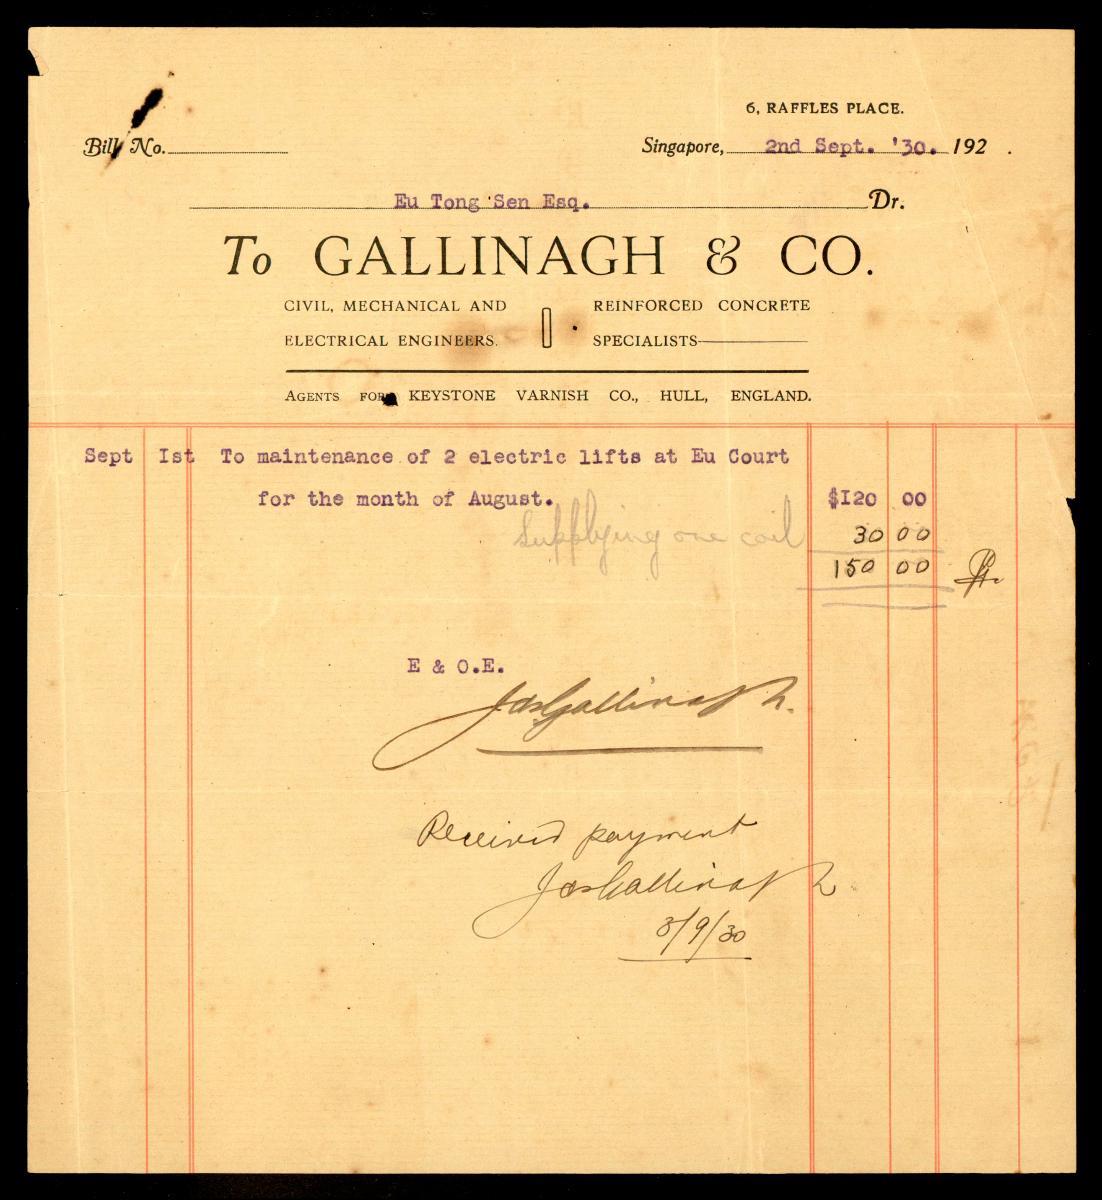 6, RAFFLES PLACE.
Bill No.
Singapore, 2nd Sept. '30. 192 .
Eu Tong Sen Esq. Dr.
To GALLINAGH & CO.
CIVIL, MECHANICAL AND
ELECTRICAL ENGINEERS.
REINFORCED CONCRETE
SPECIALISTS
AGENTS FOR KEYSTONE VARNISH CO., HULL, ENGLAND.
Sept Ist To maintenance of 2 electric lifts at Eu Court
for the month of August. $I20 00
Supplying one coil 30 00
150 00
E & O.E.
Jas Gallinagh.
Received payment
Jas Gallinagh
3/9/30